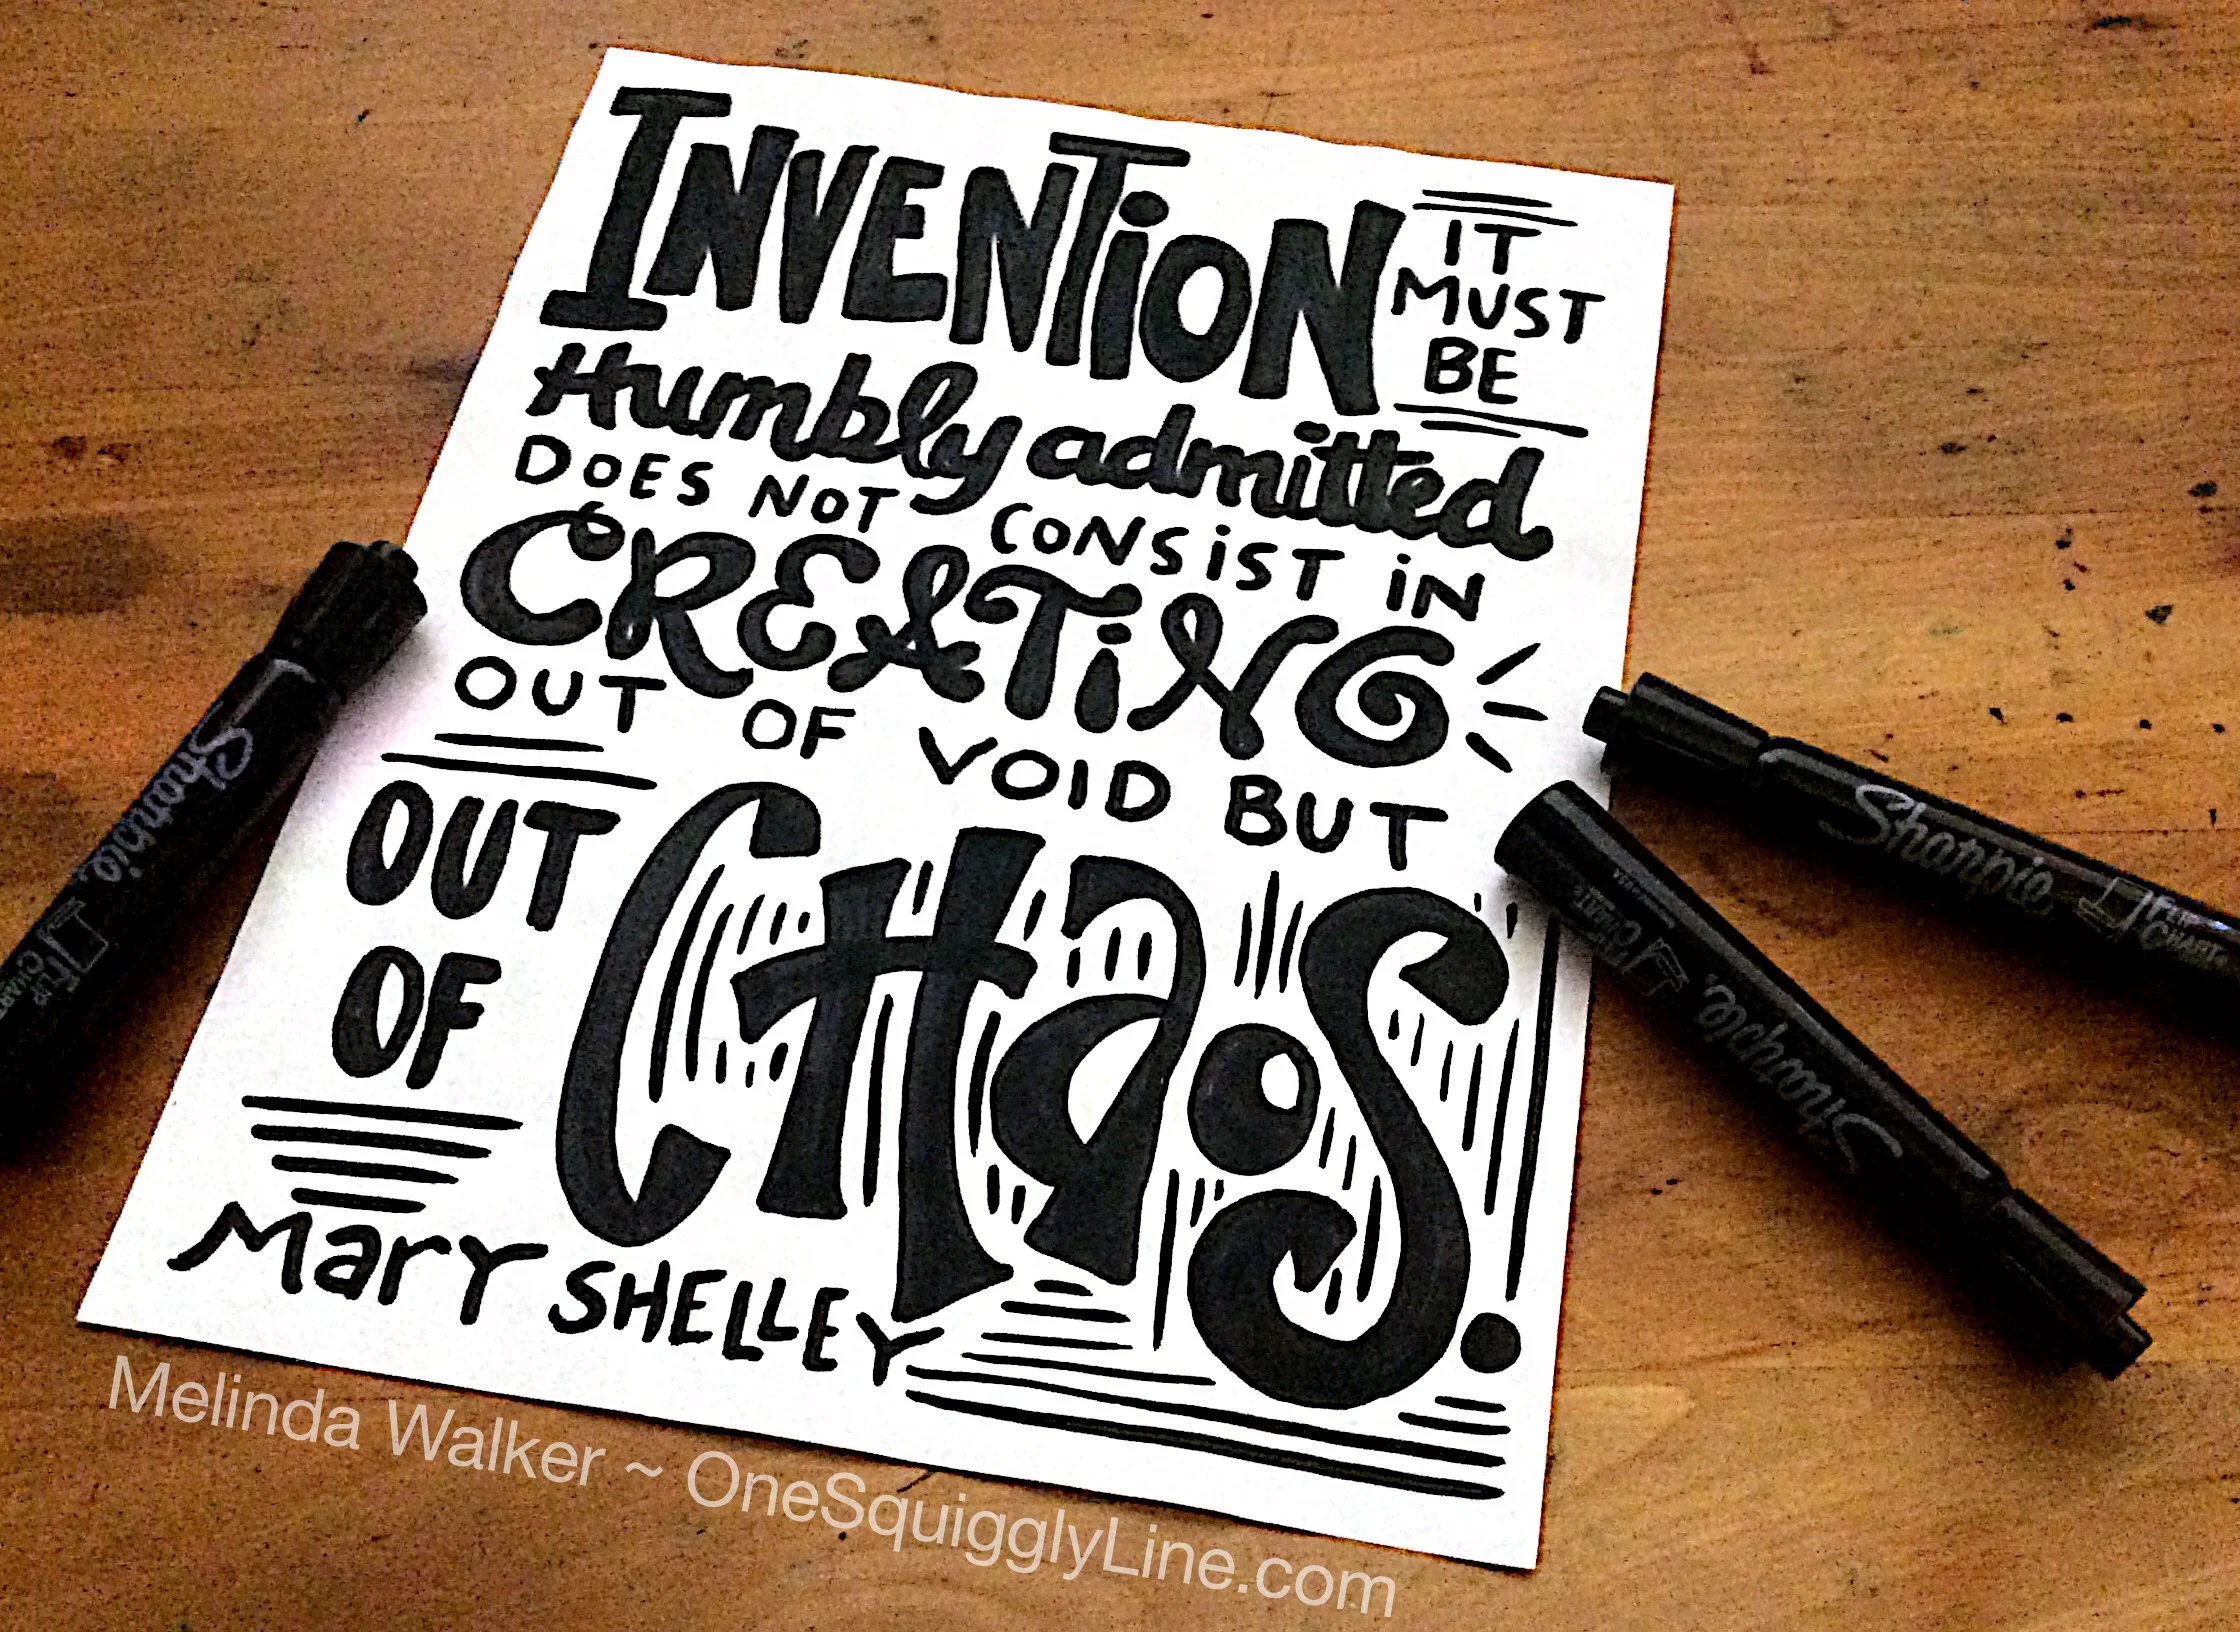 INVENTION
IT
MUST
BE
Humbly admitted
DOES NOT CONSIST IN
CREATING
OUT OF VOID BUT
OUT
OF
CHAOS.
Mary SHELLEY
Sharpie
FLIP CHART
Sharpie
FLIP CHART
Sharpie
FLIP CHART
Melinda Walker ~ OneSquigglyLine.com